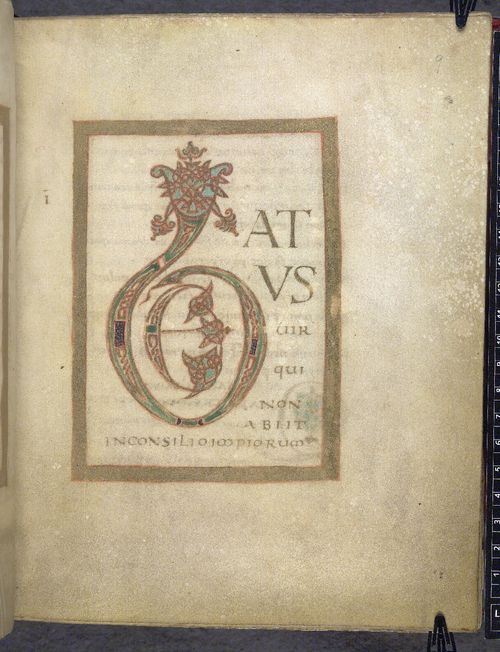 I
BEATVS
UIR
QUI
NON
ABIIT
INCONSILIOIMPIORUM